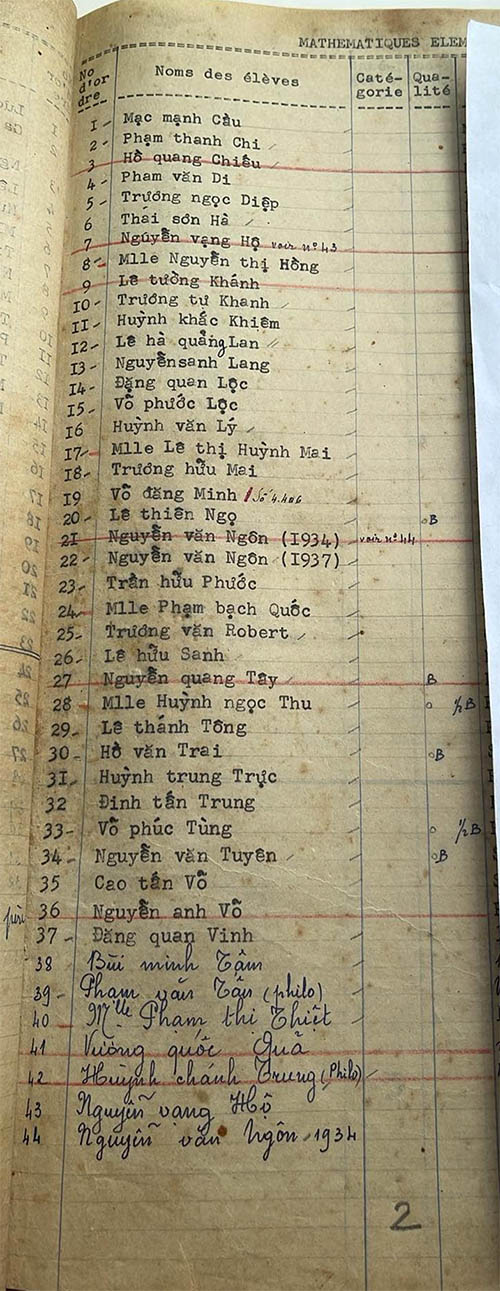 MATHEMATIQUES ELEM
No d'or dre Noms des élèves Caté- gorie Qua- lité
I - Mạc mạnh Cầu
2 - Phạm thanh Chi
3 Hồ quang Chiểu
4 - Pham văn Di
5 - Trương ngọc Diệp
6 Thái sơn Hà
7 Nguyễn vạng Hộ voir nº 43
8 - Mlle Nguyễn thị Hồng
9 Lê tường Khánh
10 - Trương tự Khanh
II - Huỳnh khắc Khiêm
I2 - Lê hà quảng Lan
I3 - Nguyễn sanh Lang
I4 - Đặng quan Lộc
I5 - Võ phước Lộc
I6 Huỳnh văn Lý
I7 - Mlle Lê thị Huỳnh Mai
I8 - Trương hữu Mai
I9 Võ đăng Minh Số 4.406
20 - Lê thiên Ngọ B
2I Nguyễn văn Ngôn (I934) voir nº 44
22 - Nguyễn văn Ngôn (I937)
23 - Trần hữu Phước
24 - Mlle Phạm bạch Quốc
25 - Trương văn Robert
26 - Lê hữu Sanh
27 Nguyễn quang Tây B
28 - Mlle Huỳnh ngọc Thu ½ B
29 - Lê thánh Tông
30 - Hồ văn Trai B
3I - Huỳnh trung Trực
32 Đinh tấn Trung
33 - Võ phúc Tùng ½ B
34 - Nguyễn văn Tuyên B
35 Cao tấn Võ
36 Nguyễn anh Võ
37 - Đăng quan Vinh
38 Bùi minh Tâm
39 - Phạm văn Tân (philo)
40 Mlle Phạm thị Thiệt
41 Vương quốc Quả
42 Huỳnh chánh Trung (Philo)
43 Nguyễn vạng Hộ
44 Nguyễn văn Ngôn 1934
2